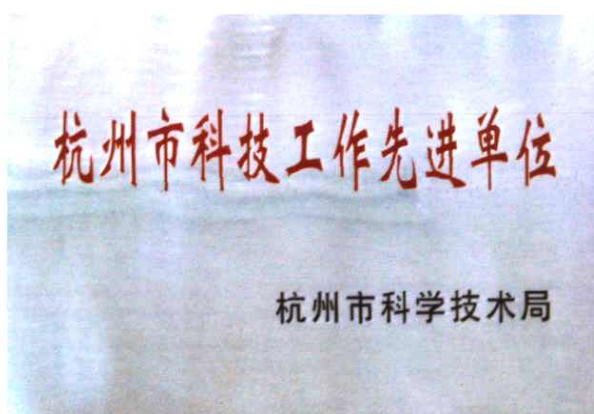 杭州市科技工作先进单位
杭州市科学技术局